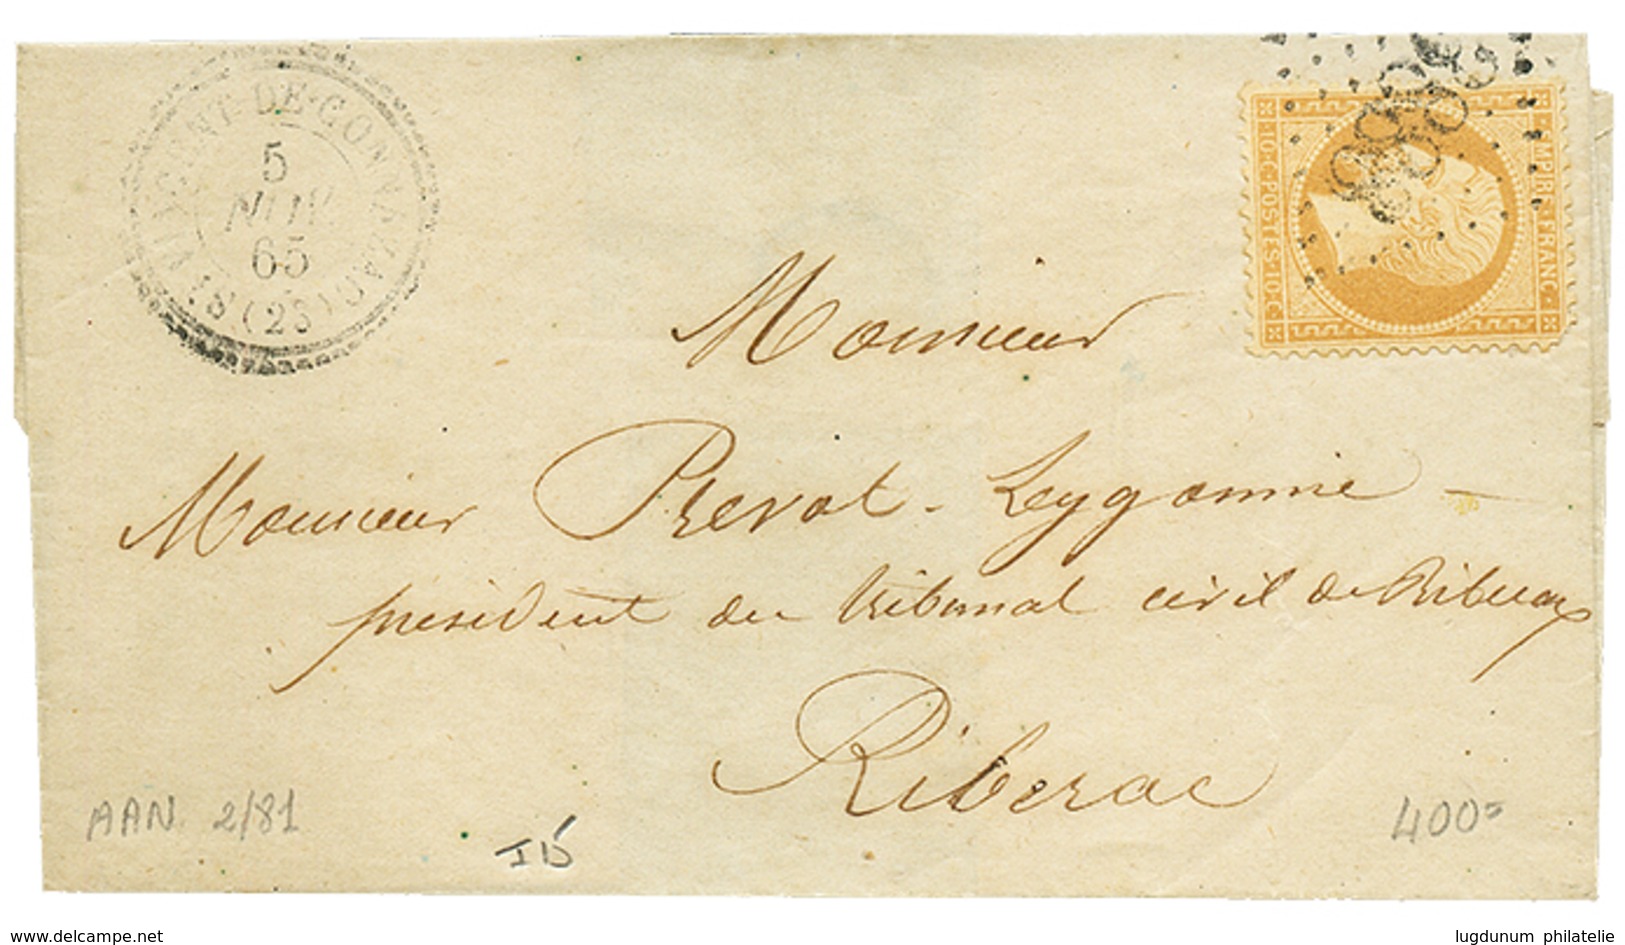 ST VINCENT-DE-CONNAZAC (23)
5
NOV.
65
EMPIRE FRANC.
10 C. POSTES 10 C.
Monsieur
Monsieur Prevot-Leygonnie -
président du tribunal civil de Riberac
Riberac
AAN. 2/81
400=
delcampe.net
lugdunum philatelie